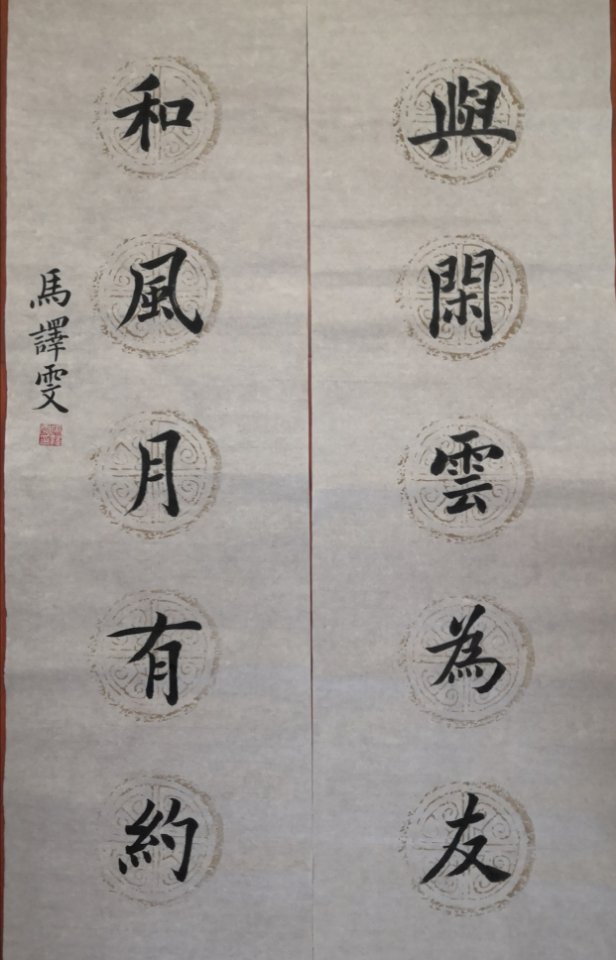 與閑雲為友
和風月有約
馬譯雯